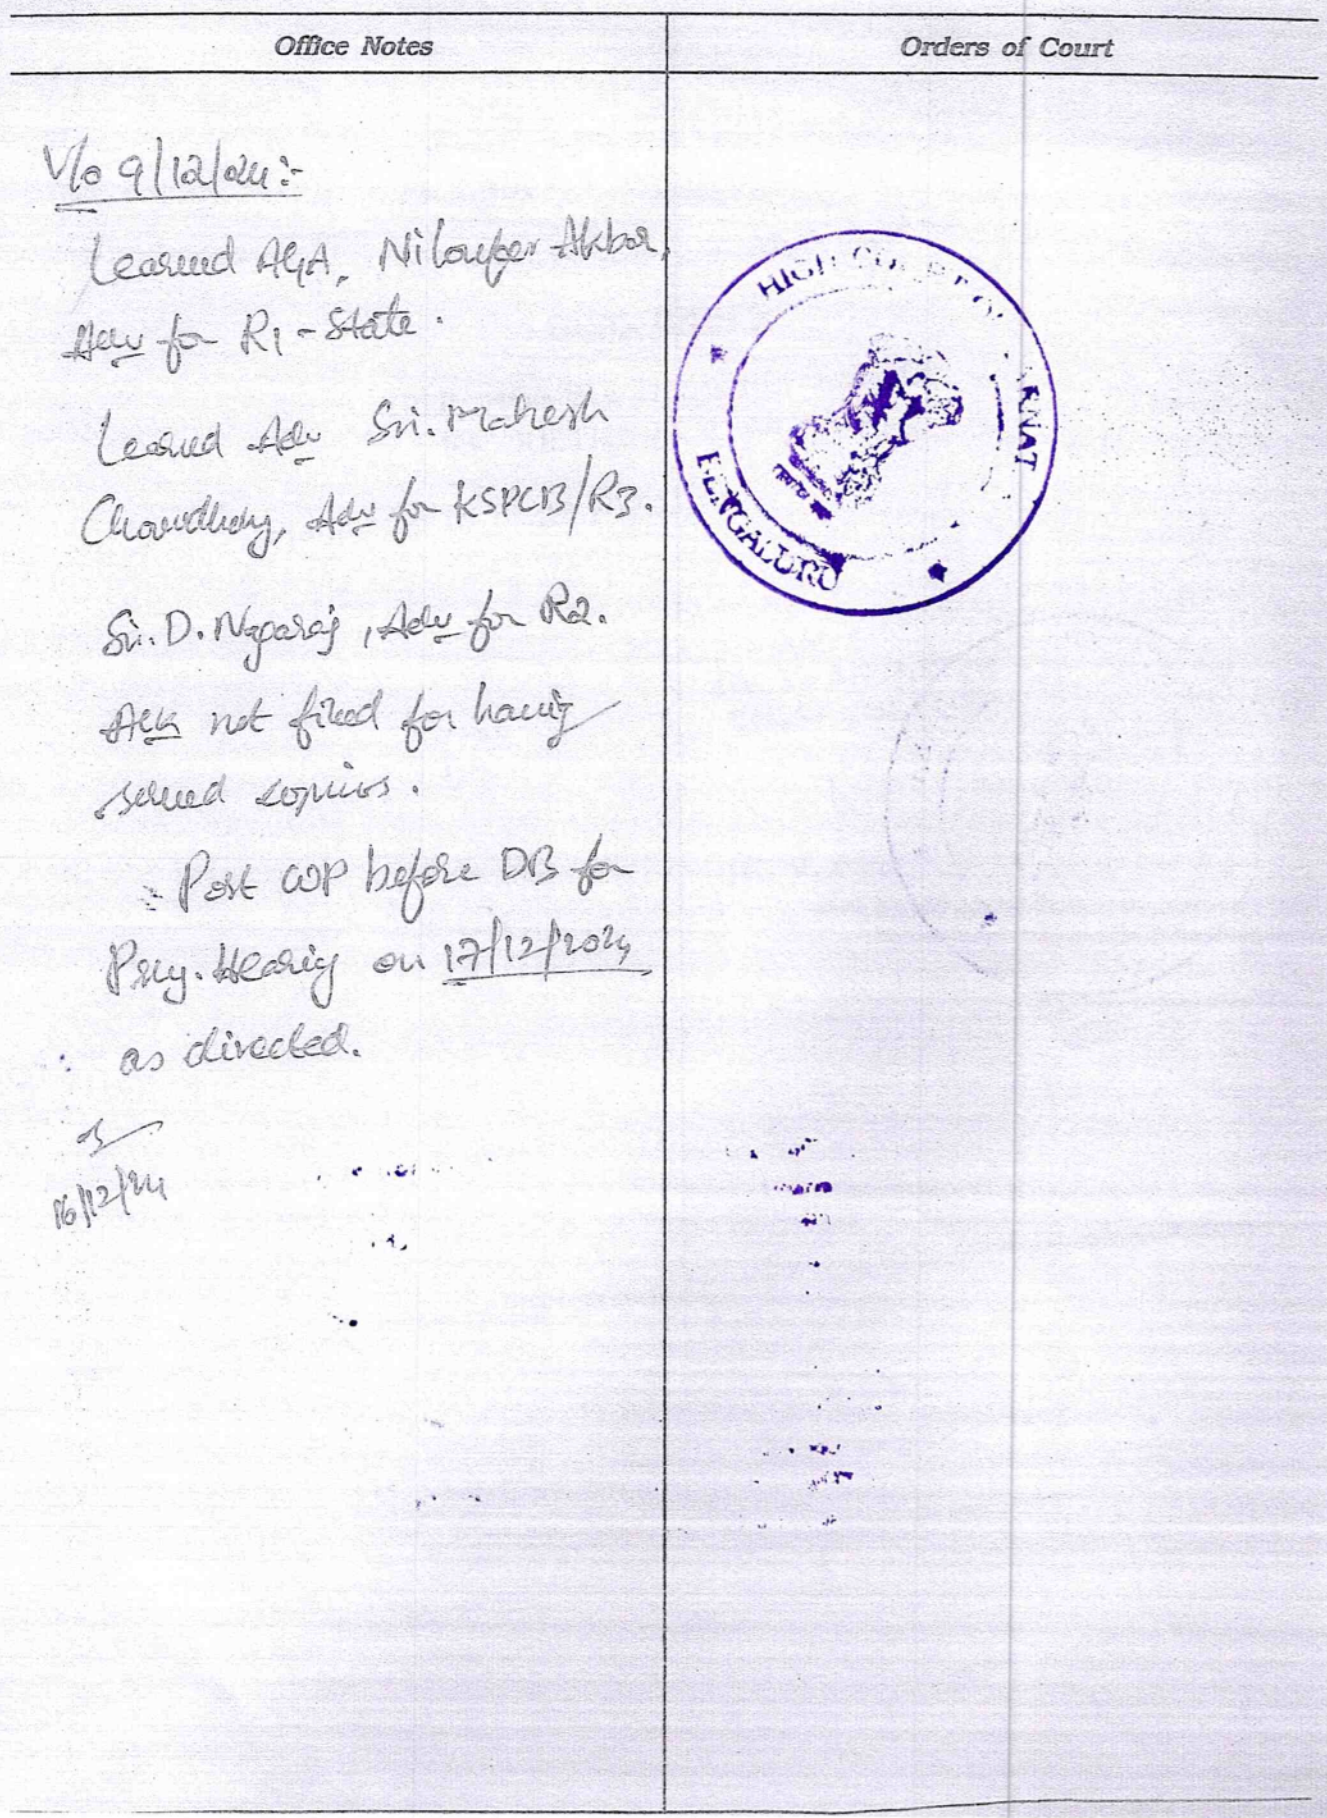 Office Notes
Orders of Court
V/o 9/12/24:-
Learned AGA, Niloufer Akbar,
Adv for R1 - State.
Learned Adv Sri. Mahesh
Chowdhary, Adv for KSPCB/R3.
Sri. D. Nagaraj, Adv for R2.
Ack not filed for having
served copies.
Post WP before DB for
Prly. Hearing on 17/12/2024
as directed.
16/12/24
HIGH COURT OF KARNAT
BENGALURU